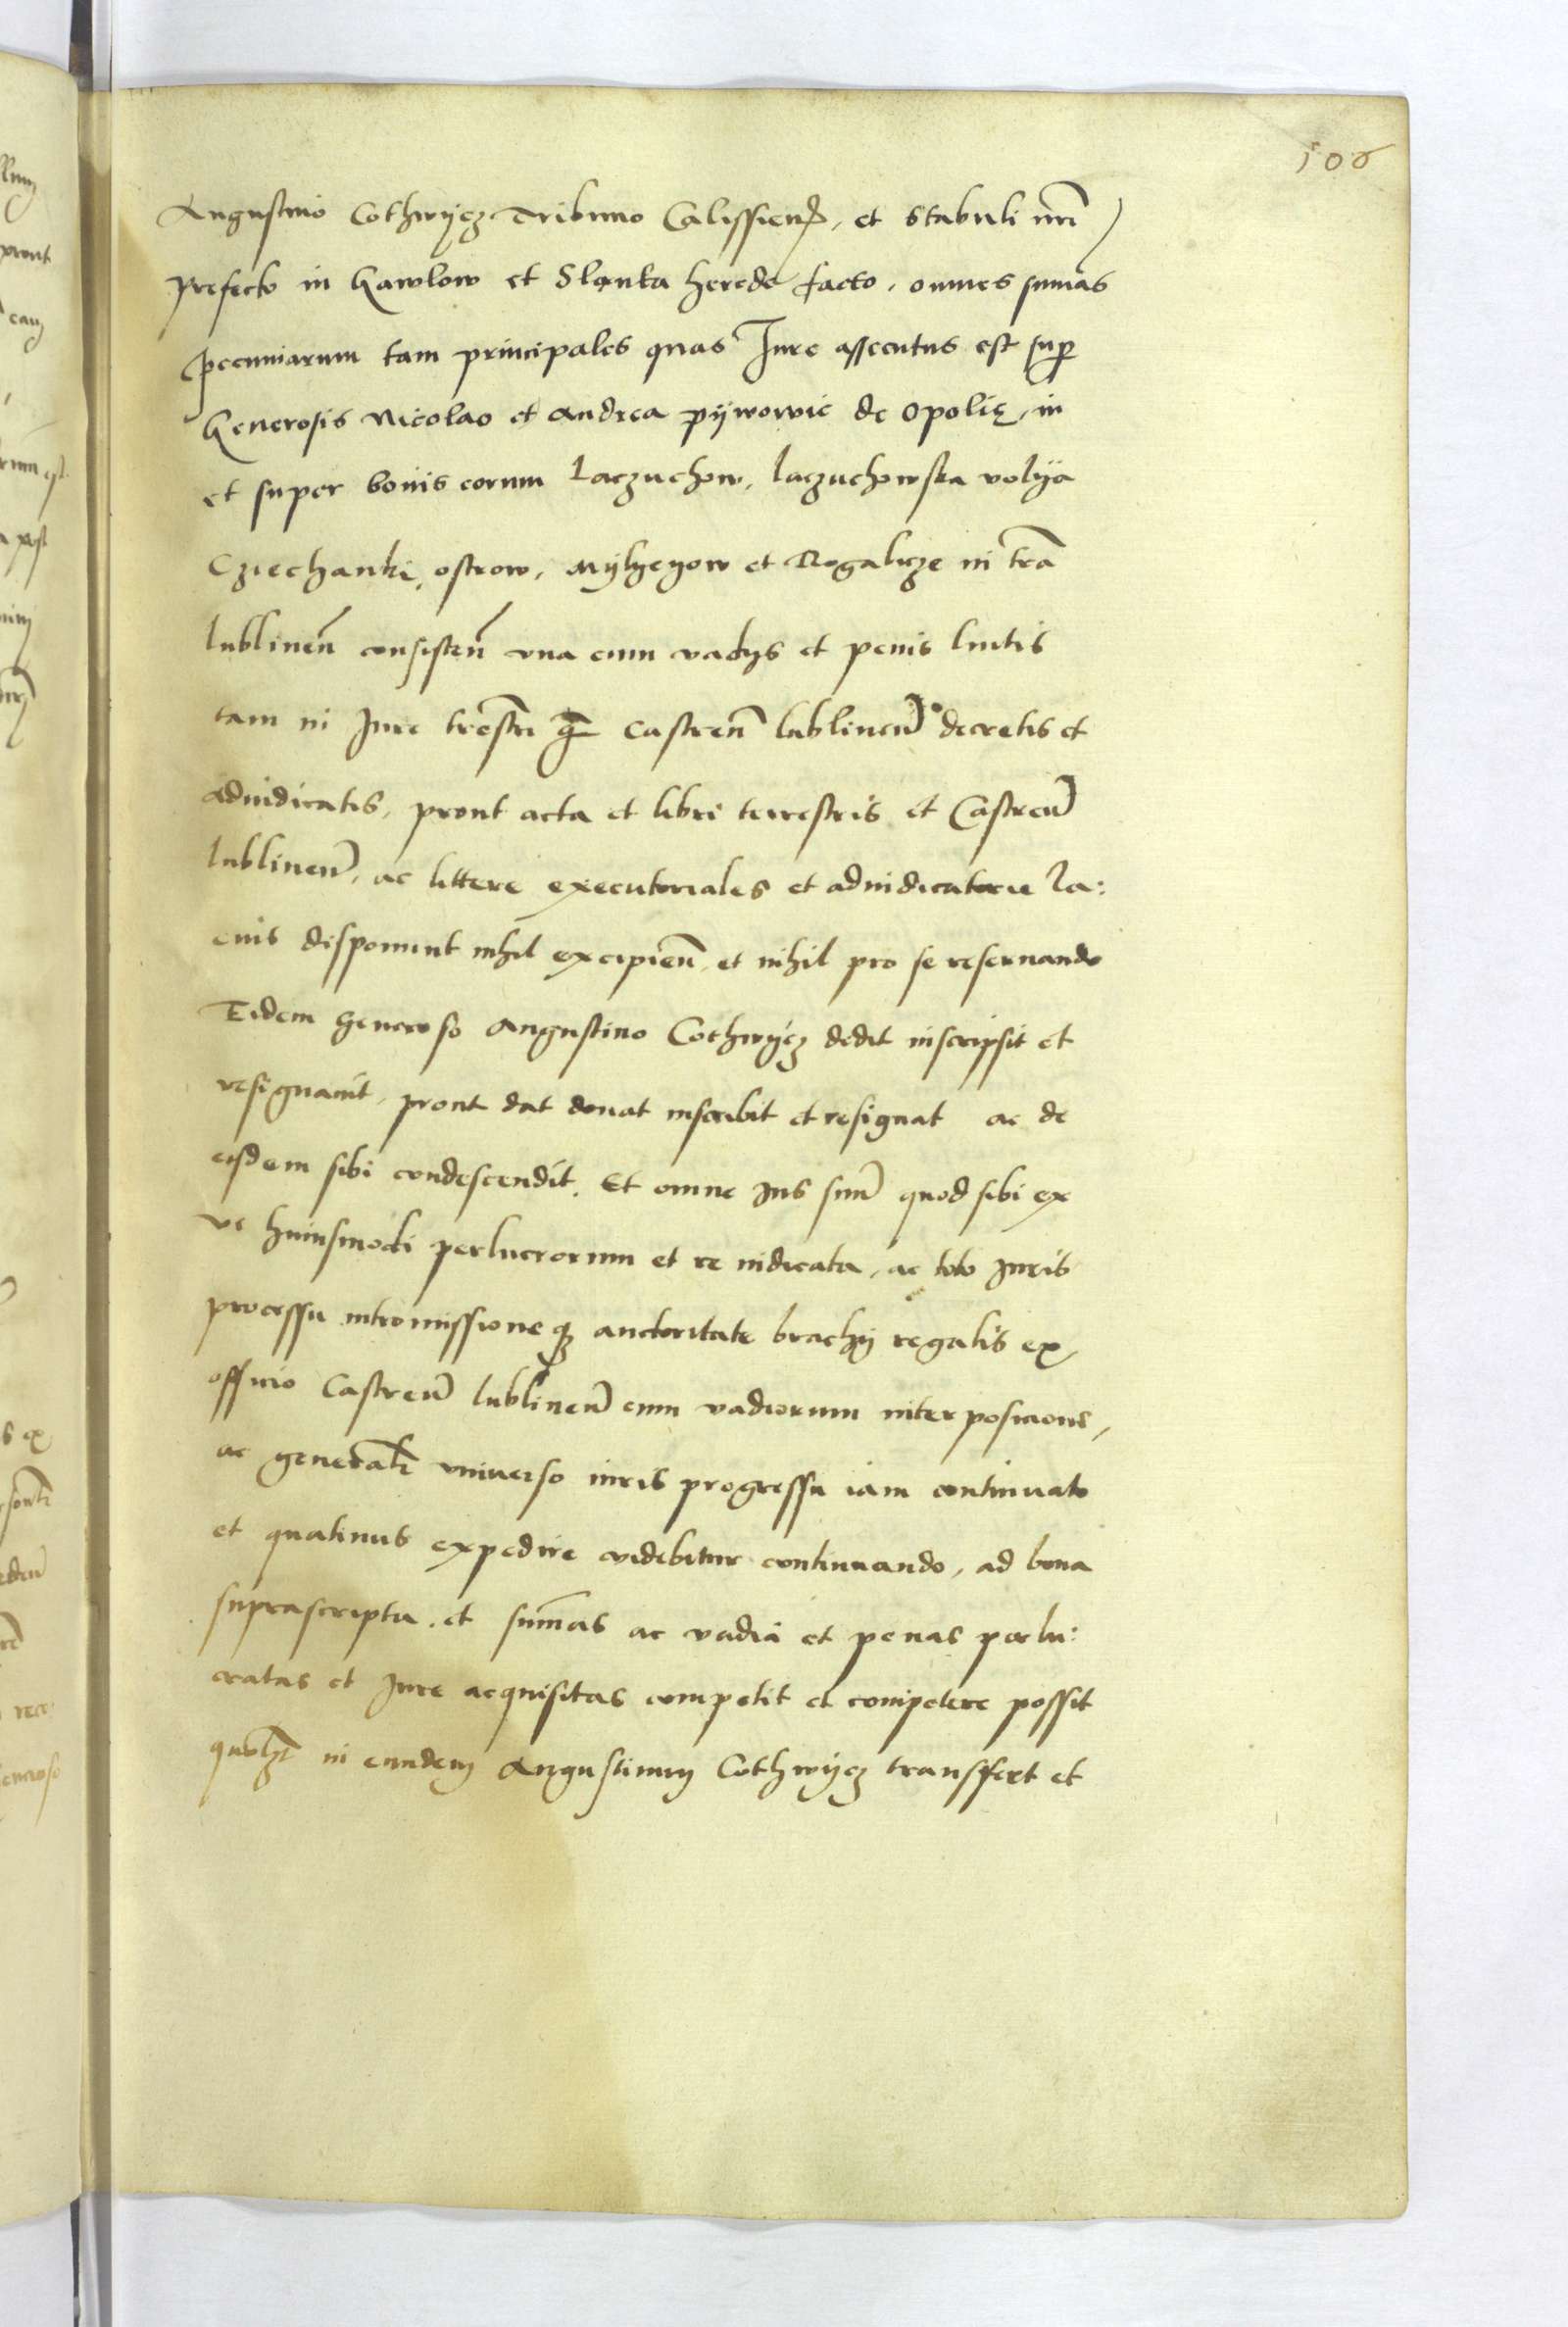 106
Augustino Cothwÿcz Tribuno Calissien, et Stabuli nri
prefecto in Gawlow et Slanka herede facto, omnes sumas
pecuniarum tam principales quas Jure assecutus est sup
Generosis Nicolao et Andrea pÿwowic de Opolię, in
et super bonis eorum Laczuchow, laczuchowska volÿa
Cziechanki, ostrow, et Rogalicze in tra
lublinen consisten vna cum vadÿs et penis luitis
tam in Jure trestri q̄ Castren lublinen decretis et
adiudicatis, prout acta et libri terrestris et Castren
lublinen, ac littere executoriales et adiudicatorie la:
cius disponunt nihil excipien, et nihil pro se reseruando
Eidem Generoso Augustino Cothwÿcz dedit inscripsit et
resignauit, prout dat donat inscribit et resignat ac de
eisdem sibi condescendit. Et omne Jus suu quod sibi ex
re huiusmodi perlucrorum et re iudicata, ac toto Juris
processu intromissioneq3 auctoritate brachÿ regalis ex
officio Castren lublinen cum vadiorum interposicione,
ac generalr vniuerso iuris progressu iam continuato
et quatinus expedire videbitur continuando, ad bona
suprascripta, et sumas ac vadia et penas perlu:
cratas et Jure acquisitas competit et competere possit
quolzt in eundem Augustinum Cothwÿcz transfert et